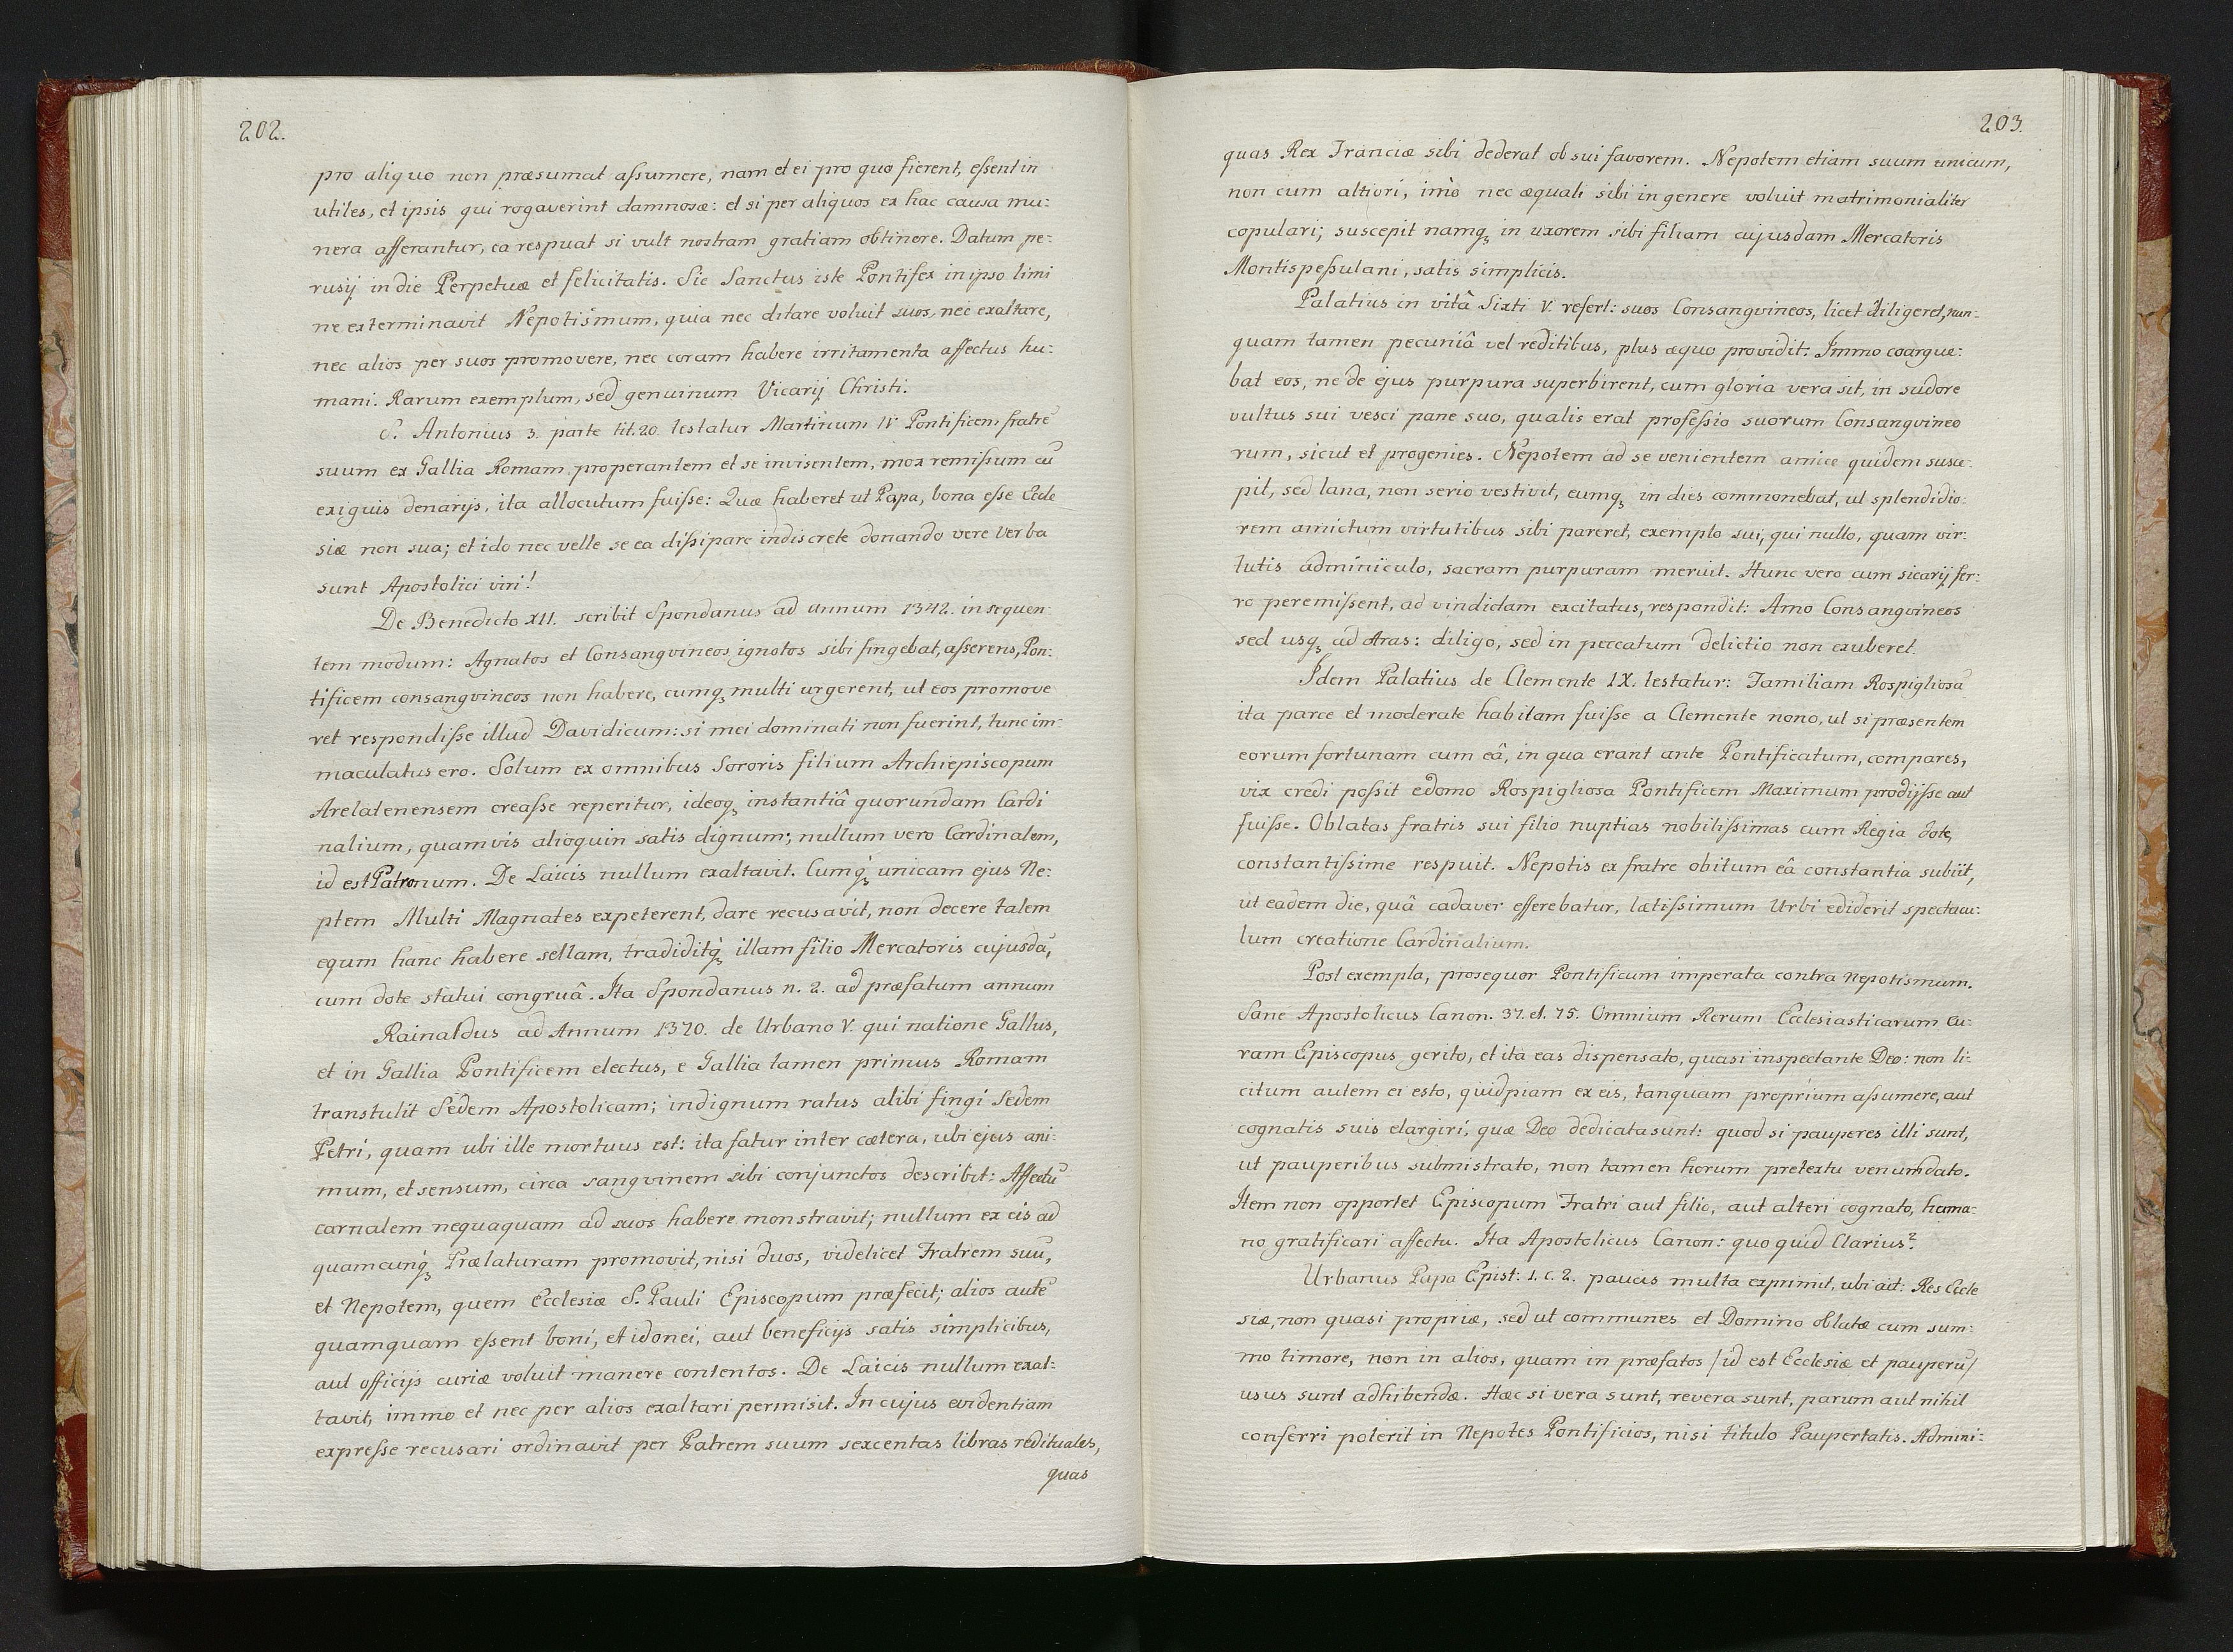 202.
pro aliquo non præsumat aſsumere, nam et ei pro quo fierent, eſsent in
utiles, et ipsis qui rogaverint damnosæ: et si per aliquos ex hac causa mu:
nera afferantur, ea respuat si vult nostram gratiam obtinere. Datum pe:
rusij in die Perpetuæ et felicitatis. Sic Sanctus iste Pontifex in ipso limi
ne exterminavit Nepotismum, quia nec ditare voluit suos, nec exaltare,
nec alios per suos promovere, nec coram habere irritamenta affectus hu:
mani. Rarum exemplum, sed genuinum Vicarij Christi.
S. Antonius 3. parte tit. 20. testatur Martinum IV Pontificem fratrē
suum ex Gallia Romam properantem et se invisentem, mox remiſsum cū
exiguis denarijs, ita allocutum fuiſse: Quæ haberet ut Papa, bona eſse Eccle
siæ non sua; et ido nec velle se ea diſsipare indiscrete donando vere Verba
sunt Apostolici viri!
De Benedicto XII. scribit Spondanus ad annum 1342. in sequen:
tem modum: Agnatos et Consangvineos ignotos sibi fingebat, aſserens, Pon:
tificem consangvineos non habere, cumq₃ multi urgerent, ut eos promove
ret respondiſse illud Davidicum: si mei dominati non fuerint, tunc im:
maculatus ero. Solum ex omnibus Sororis filium Archiepiscopum
Arelatenensem creaſse reperitur, ideoq₃ instantiâ quorundam Cardi
nalium, quamvis alioquin satis dignum; nullum vero Cardinalem,
id est Patronum. De Laicis nullum exaltavit. Cumq₃ unicam ejus Ne:
ptem Multi Magnates expeterent, dare recusavit, non decere talem
equm hanc habere sellam, tradiditq₃ illam filio Mercatoris cujusdā,
cum dote statui congruâ. Ita Spondanus n. 2. ad præfatum annum
Rainaldus ad Annum 1370. de Urbano V. qui natione Gallus,
et in Gallia Pontificem electus, e Gallia tamen primus Romam
transtulit Sedem Apostolicam; indignum ratus alibi fingi Sedem
Petri, quam ubi ille mortuus est: ita fatur inter cætera, ubi ejus ani:
mum, et sensum, circa sangvinem sibi conjunctos describit: Affectū
carnalem nequaquam ad suos habere monstravit; nullum ex eis ad
quamcunq₃ Prælaturam promovit, nisi duos, videlicet Fratrem suū,
et Nepotem, quem Ecclesiæ S. Pauli Episcopum præfecit; alios autē
quamquam eſsent boni, et idonei, aut beneficijs satis simplicibus,
aut officijs curiæ voluit manere contentos. De Laicis nullum exal:
tavit, immo et nec per alios exaltari permisit. In cujus evidentiam
expreſse recusari ordinavit per Patrem suum sexcentas libras redituales,
quas
203.
quas Rex Franciæ sibi dederat ob sui favorem. Nepotem etiam suum unicum,
non cum altiori, imò nec æquali sibi in genere voluit matrimonialiter
copulari; suscepit namq₃ in uxorem sibi filiam cujusdam Mercatoris
Montispeſsulani, satis simplicis.
Palatius in vitâ Sixti V. refert: suos Consangvineos, licet diligeret, nun:
quam tamen pecuniâ vel reditibus, plus æquo providit: Immo coargue:
bat eos, ne de ejus purpura superbirent, cum gloria vera sit, in sudore
vultus sui vesci pane suo, qualis erat profeſsio suorum Consangvineo
rum, sicut et progenies. Nepotem ad se venientem amice quidem susce:
pit, sed lana, non serio vestivit, eumq₃ in dies commonebat, ut splendidio:
rem amictum virtutibus sibi pareret, exemplo sui, qui nullo, quam vir:
tutis adminiculo, sacram purpuram meruit. Hunc vero cum sicarij fer:
ro peremiſsent, ad vindictam excitatus, respondit: Amo Consangvineos
sed usq₃ ad Aras: diligo, sed in peccatum delictio non exuberet.
Idem Palatius de Clemente IX. testatur: Familiam Rospigliosā
ita parce et moderate habitam fuiſse a Clemente nono, ut si præsentem
eorum fortunam cum eâ, in qua erant ante Pontificatum, compares,
vix credi poſsit edomo Rospigliosa Pontificem Maximum prodijſse aut
fuiſse. Oblatas fratris sui filio nuptias nobiliſsimas cum Regia dote,
constantiſsime respuit. Nepotis ex fratre obitum eâ constantia subiit,
ut eadem die, quâ cadaver efferebatur, lætiſsimum Urbi ediderit spectacu:
lum creatione Cardinalium.
Post exempla, prosequor Pontificum imperata contra Nepotismum.
Sane Apostolicus Canon. 37. et. 75. Omnium Rerum Ecclesiasticarum Cu:
ram Episcopus gerito, et ita eas dispensato, quasi inspectante Deo: non li:
citum autem ei esto, quidpiam ex eis, tanquam proprium aſsumere, aut
cognatis suis elargiri, quæ Deo dedicata sunt: quod si pauperes illi sunt,
ut pauperibus submistrato, non tamen horum pretextu venumdato.
Item non opportet Episcopum Fratri aut filio, aut alteri cognato, huma:
no gratificari affectu. Ita Apostolicus Canon: quo quid Clarius?
Urbanus Papa Epist: 1. c. 2. paucis multa exprimit, ubi ait: Res Eccle
siæ, non quasi propriæ, sed ut communes et Domino oblatæ cum sum:
mo timore, non in alios, quam in præfatos /id est Ecclesiæ et pauperū/
usus sunt adhibendæ. Hæc si vera sunt, revera sunt, parum aut nihil
conferri poterit in Nepotes Pontificios, nisi titulo Paupertatis. Admini: